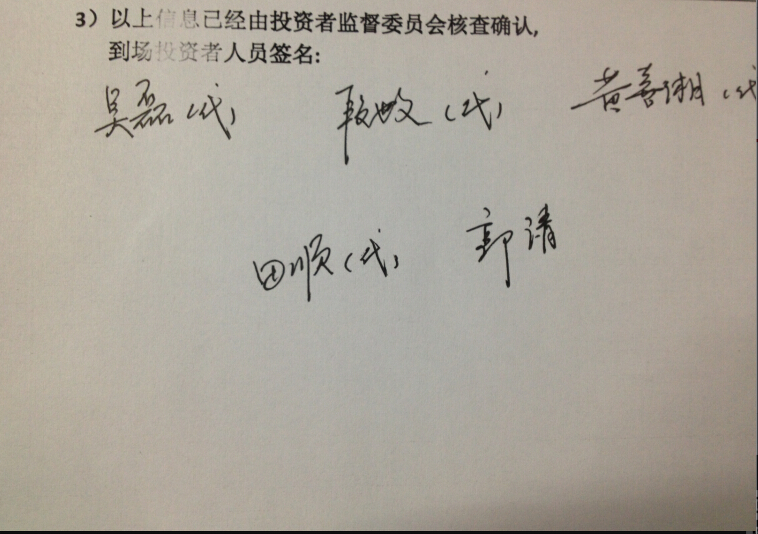 3）以上信息已经由投资者监督委员会核查确认,
到场投资者人员签名:
吴磊（代） （代） 黄喜湘（代
田顺（代） 郭请